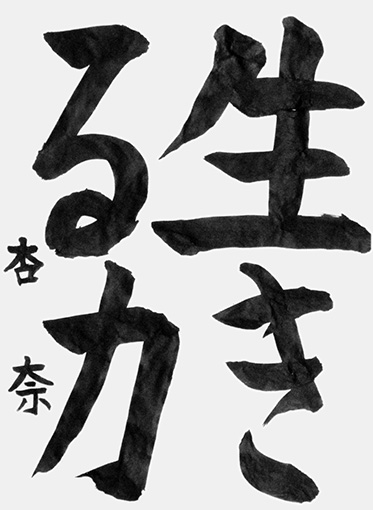 生き
る力
杏奈